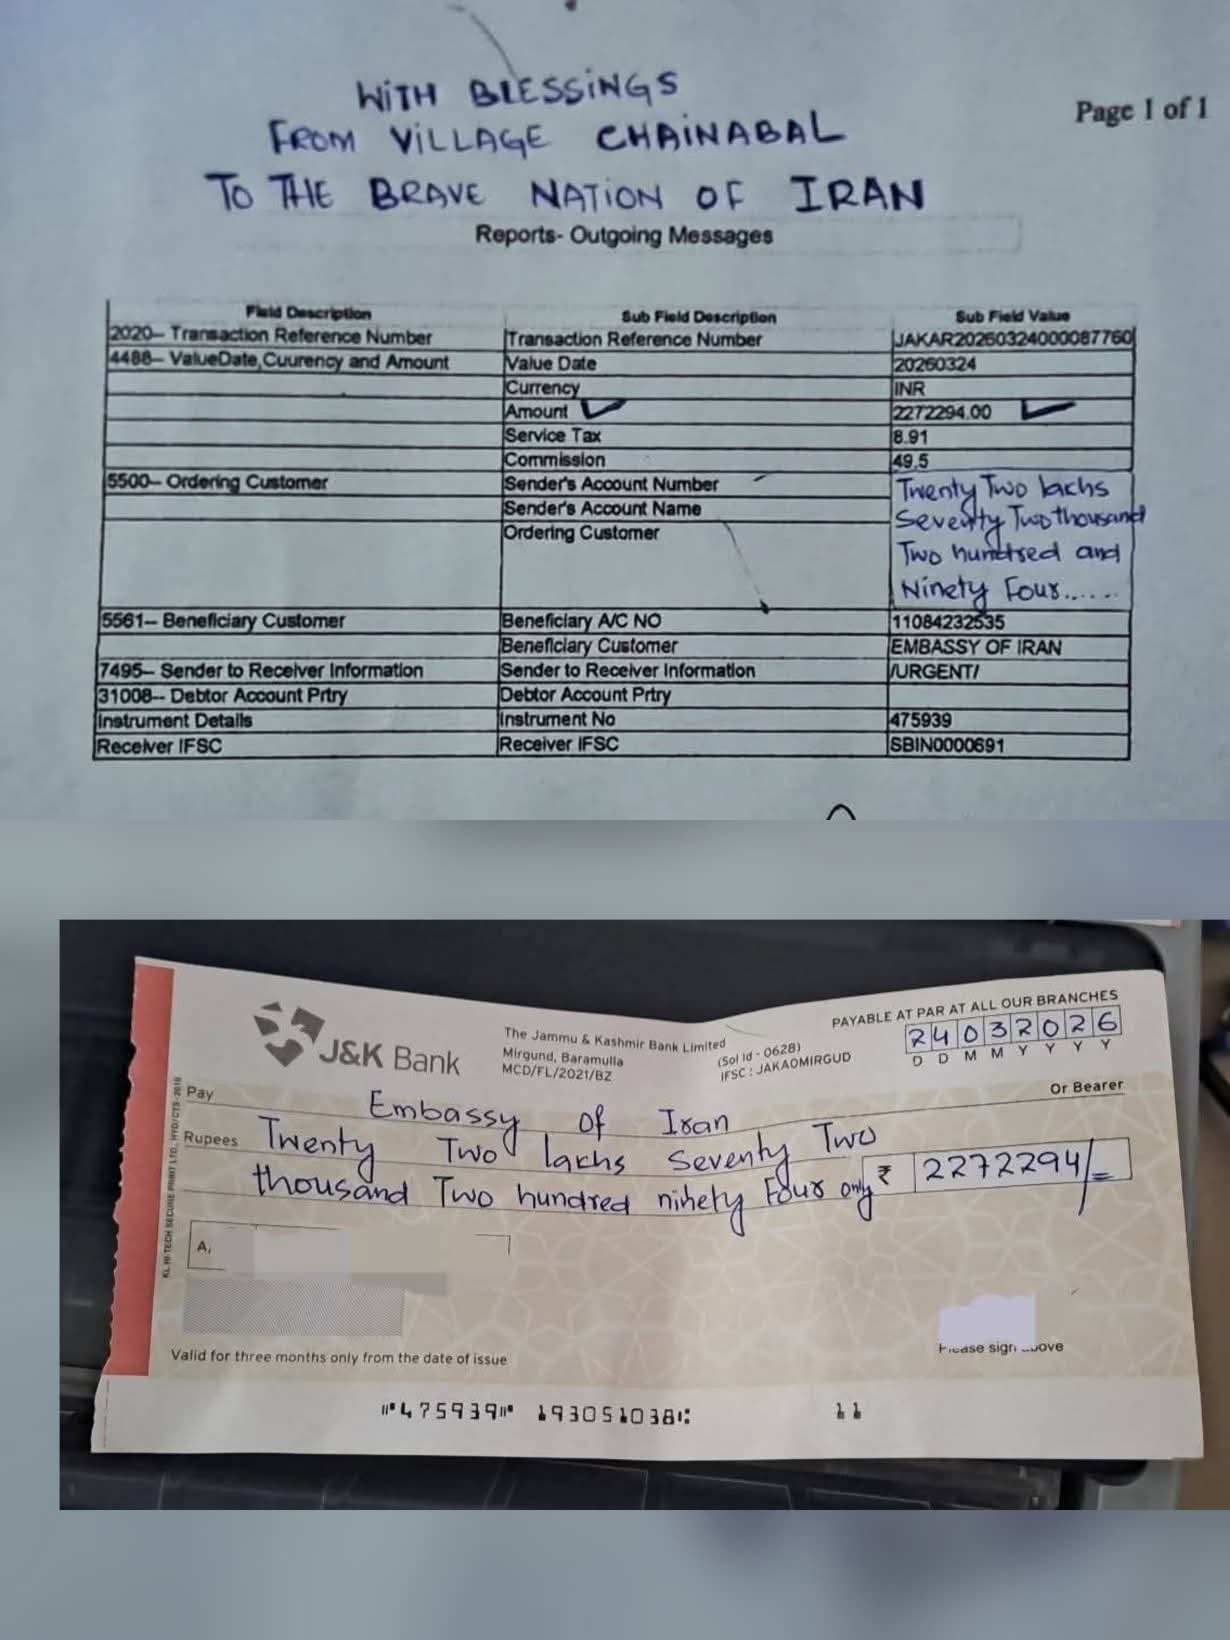 WITH BLESSINGS
FROM VILLAGE CHAINABAL
TO THE BRAVE NATION OF IRAN
Page 1 of 1
Reports- Outgoing Messages
Field Description Sub Field Description Sub Field Value
2020-- Transaction Reference Number Transaction Reference Number JAKAR20260324000087760
4488-- ValueDate,Cuurency and Amount Value Date 20260324
Currency INR
Amount 2272294.00
Service Tax 8.91
Commission 49.5
5500-- Ordering Customer Sender's Account Number
Sender's Account Name
Ordering Customer
Twenty Two lachs
Seventy Two thousand
Two hundred and
Ninety Four......
5561-- Beneficiary Customer Beneficiary A/C NO 11084232535
Beneficiary Customer EMBASSY OF IRAN
7495-- Sender to Receiver Information Sender to Receiver Information /URGENT/
31008-- Debtor Account Prtry Debtor Account Prtry
Instrument Details Instrument No 475939
Receiver IFSC Receiver IFSC SBIN0000691
J&K Bank
The Jammu & Kashmir Bank Limited
Mirgund, Baramulla
MCD/FL/2021/BZ
(Sol Id - 0628)
IFSC : JAKA0MIRGUD
PAYABLE AT PAR AT ALL OUR BRANCHES
24032026
D D M M Y Y Y Y
Pay Embassy of Iran Or Bearer
Rupees Twenty Two lachs Seventy Two
thousand Two hundred ninety Four only ₹ 2272294/=
A
KL HI-TECH SECURE PRINT LTD., HYD/CTS-2010
Valid for three months only from the date of issue
Please sign above
⑈475939⑈ 193051038⑆ 11